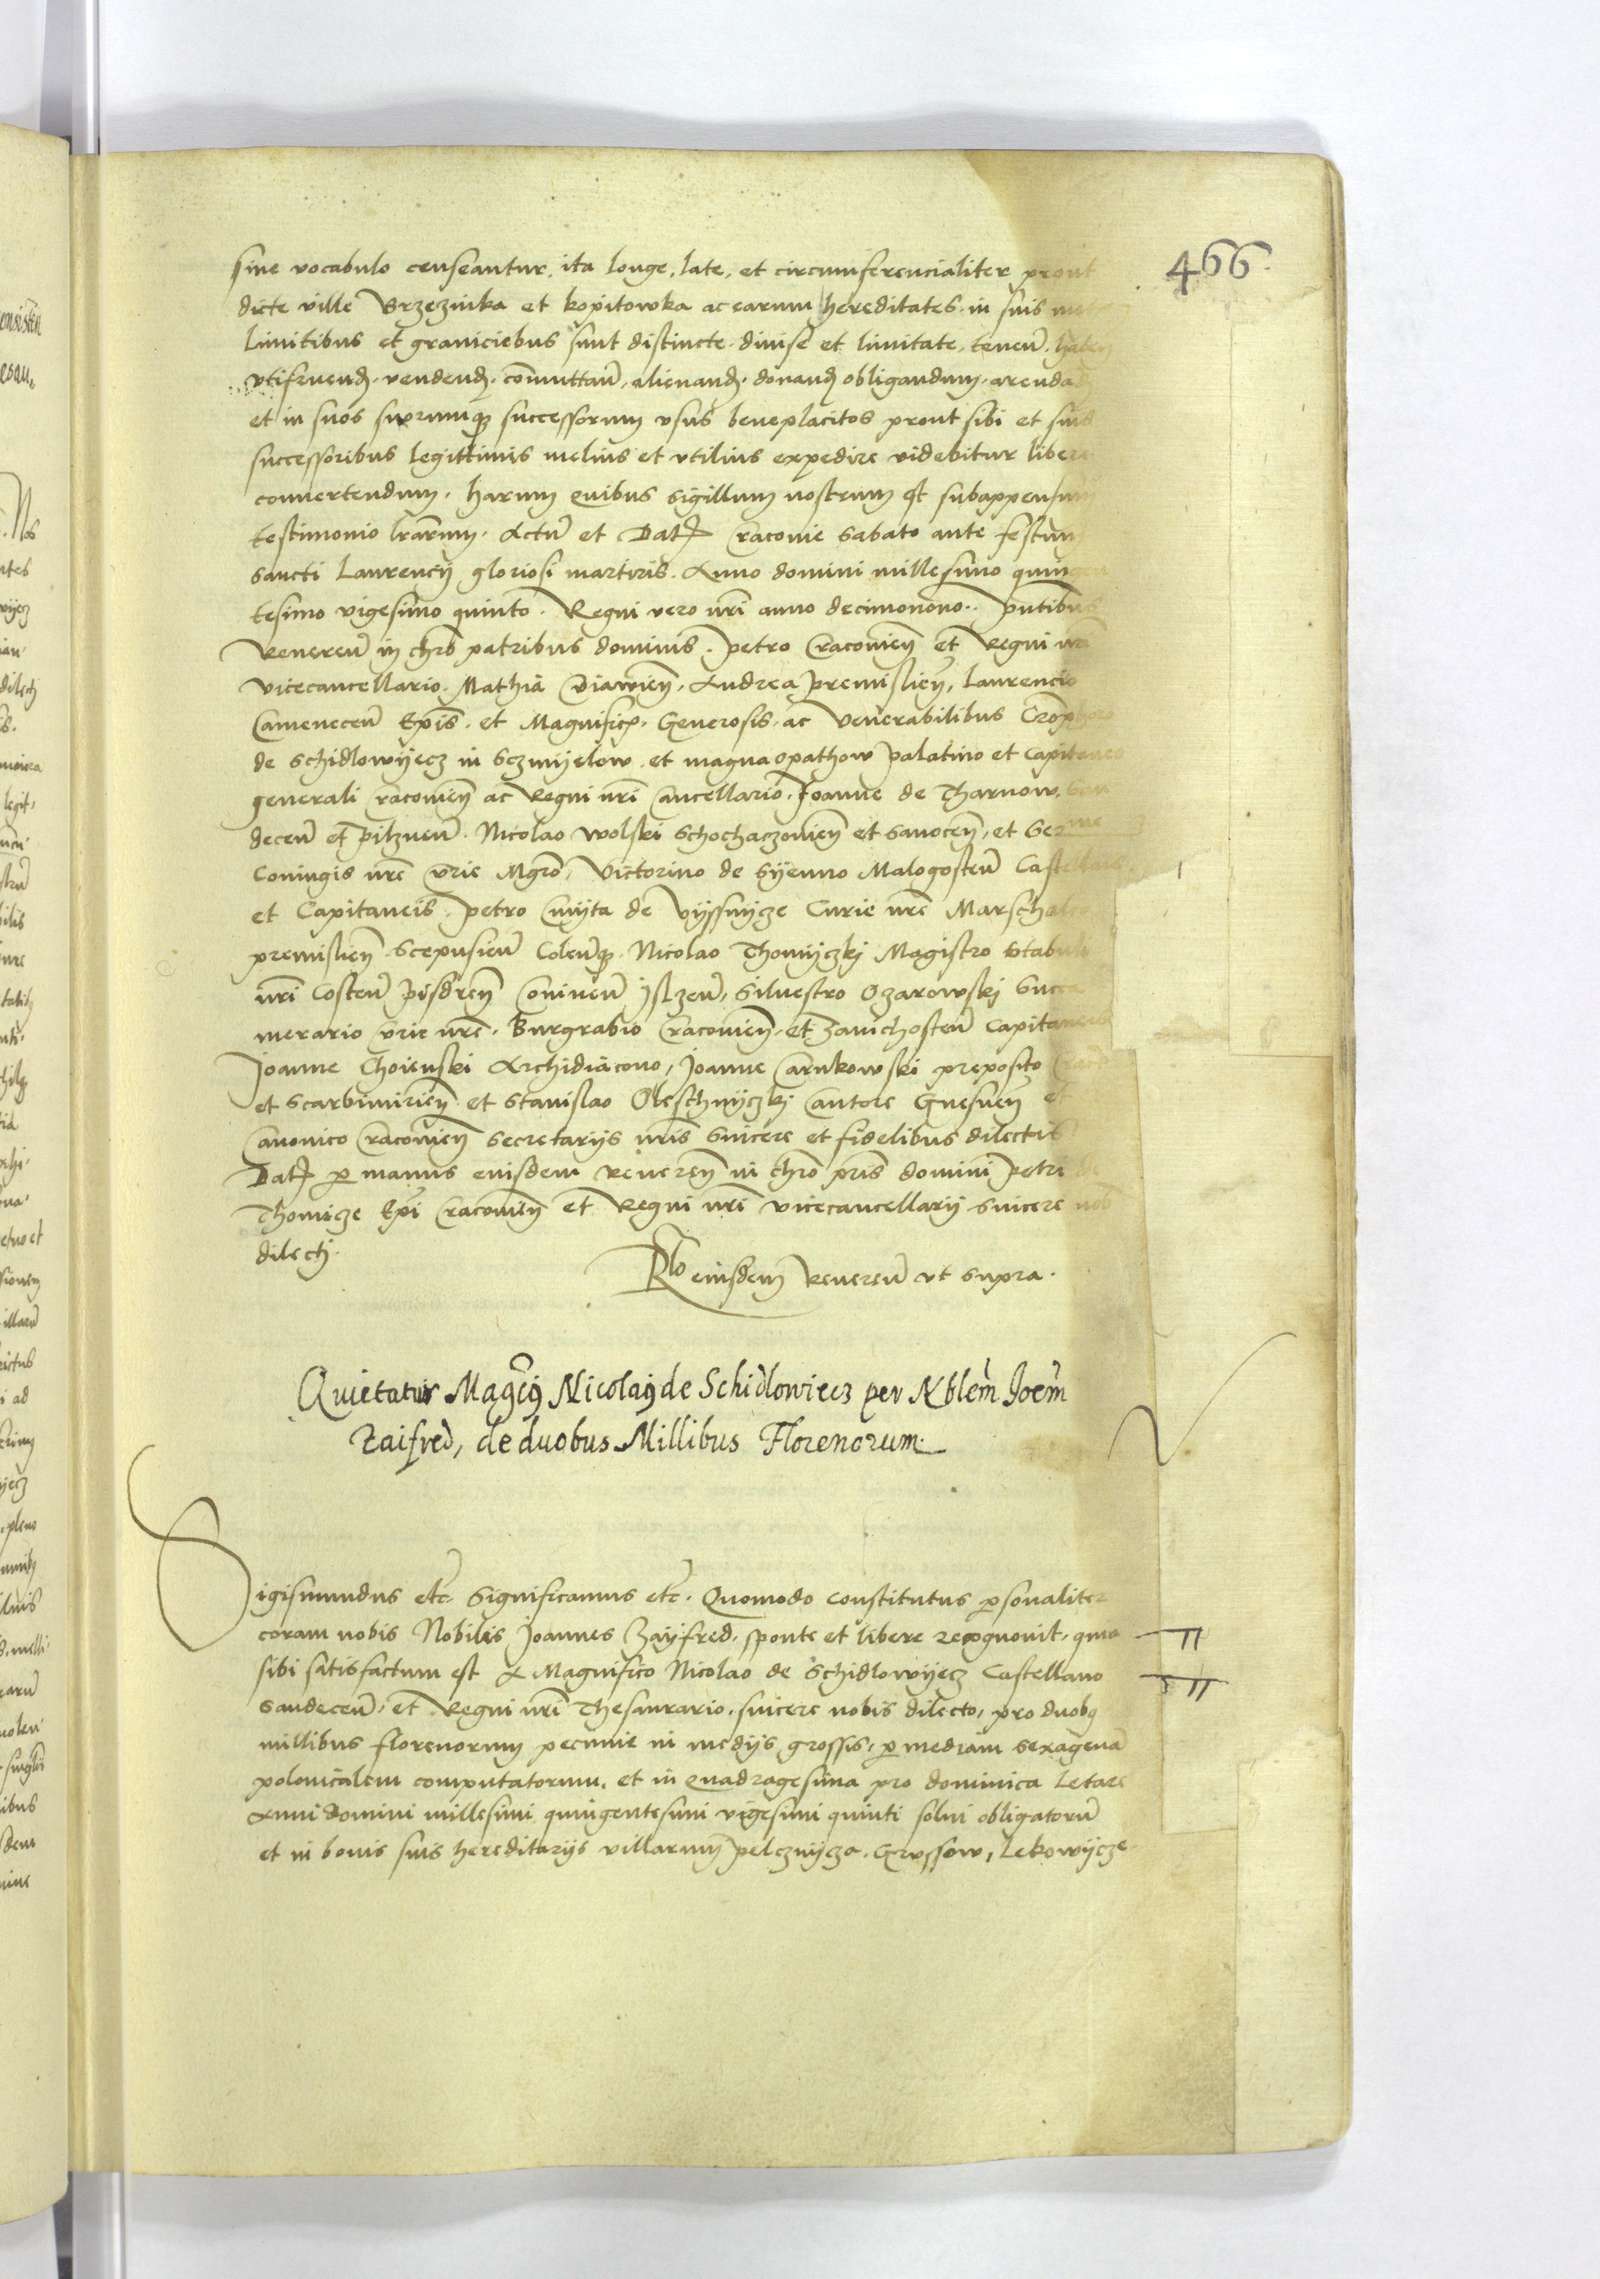 466.
sine vocabulo censeantur, ita longe, late, et circumferencialiter prout
dicte ville Brzezinka et kopitowka ac earum hereditates in suis
limitibus et graniciebus sunt distincte, divise et limitate, teneñ. haben
utifruend, vendend, comuttañ, alienand, donand obligandum, arendad
et in suos suorumq successorum usus beneplacitos prout sibi et suis
successoribus legittimis melius et utilius expedire videbitur libere
convertendum. harum quibus sigillum nostrum est subappensum
testimonio lrarum. Actum et Dat Cracovie Sabato ante festum
sancti Laurencij gloriosi martiris. Anno domini millesimo quingen
tesimo vigesimo quinto. Regni vero nri anno decimonono. pntibus
Revereñ in chro patribus dominis. petro Cracovień et Regni nri
vicecancellario. Mathia Vladień, Andrea premislień, Laurencio
Cameneceñ Epis. et Magnific. Generosis. ac Venerabilibus Crophoro
de Schidlowyecz in Sczmyelow et magna opathow palatino et Capitaneo
generali Cracovień ac Regni nri Cancellario. Joanne de Tharnow, San
deceñ et pilzneñ. Nicolao Wolski Schochaczovień et Sanoceń, et Serme
Coniugis nre Curie Mgro, Victorino de Syenno Malogosteñ Castellanis
et Capitaneis. petro Cmyta de Vyssnycze Curie nre Marschalco
premislień Scepusieñ Coleñq. Nicolao Thomyczkj Magistro Stabuli
nri Costeñ pisdreń Conineñ Jslzeñ, Silvestro Ozarowskj Succa
merario Curie nre. Burgrabio Cracovień et Zawichosteñ Capitaneis
Joanne Choienski Archidiacono, Joanne Carnkowski preposito
et Scarbimirień et Stanislao Oleschnyczkj Cantore Gnesneń et
Canonico Cracovień Secretarijs nris sincere et fidelibus dilectis
Dat p manus eiusdem Revereń in chro pris domini petri de
Thomicze Epi Cracovień et Regni nri vicecancellarij sincere nob
dilectj.
Rlo eiusdem Revereñ ut supra.
Quietatur Magcus Nicolaus de Schidlowiecz per Nblem Joem
Zaifred, de duobus Millibus Florenorum.
Sigismundus etc. Significamus etc. Quomodo constitutus psonaliter
coram nobis Nobilis Joannes Zayfred, sponte et libere recognovit, quia
sibi satisfactum est A Magnifico Nicolao de Schidlowyecz Castellano
Sandeceñ, et Regni nri Thesaurario, sincere nobis dilecto, pro duobus
millibus florenorum pecunie in medijs grossis, p mediam sexagenam
polonicalem computatorum, et in quadragesima pro dominica letare
Anni Domini millesimi quingentesimi vigesimi quinti solvi obligatorum
et in bonis suis hereditarijs villarum pelcznycza, Grussow, Lekowycze